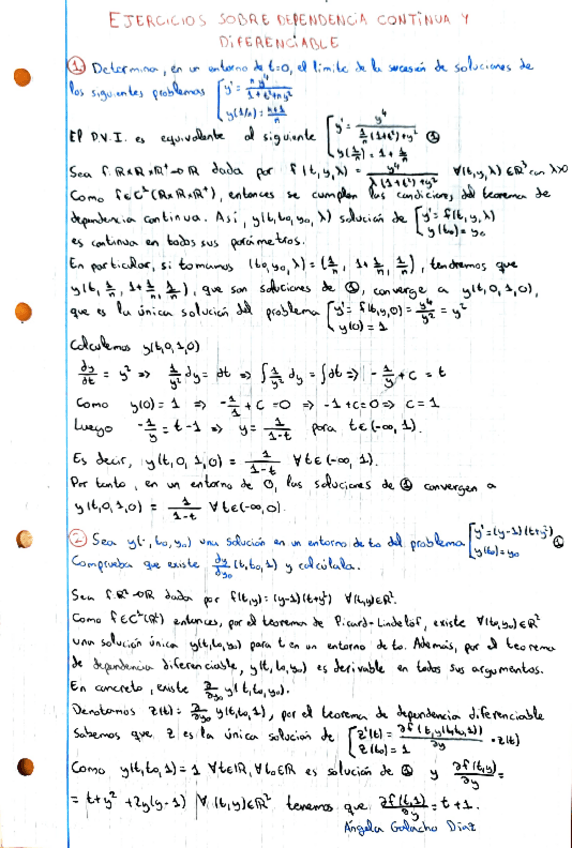 EJERCICIOS SOBRE DEPENDENCIA CONTINUA Y
DIFERENCIABLE
1. Determina, en un entorno de t=0, el límite de la sucesión de soluciones de
los siguientes problemas { y' = n y⁴ / (1+t²+ny²)
y(1/n) = (n+1)/n
El P.V.I. es equivalente al siguiente { y' = y⁴ / (1/n (1+t²)+y²) ①
y(1/n) = 1 + 1/n
Sea f: R×R×R⁺→R dada por f(t,y,λ) = y⁴ / (λ(1+t²)+y²) ∀(t,y,λ)∈R³ con λ>0
Como f∈C¹(R×R×R⁺), entonces se cumplen las condiciones del teorema de
dependencia continua. Así, y(t,t₀,y₀,λ) solución de { y' = f(t,y,λ)
y(t₀) = y₀
es continua en todos sus parámetros.
En particular, si tomamos (t₀,y₀,λ) = (1/n, 1+1/n, 1/n), tendremos que
y(t, 1/n, 1+1/n, 1/n), que son soluciones de ①, converge a y(t,0,1,0),
que es la única solución del problema { y' = f(t,y,0) = y⁴/y² = y²
y(0) = 1
Calculemos y(t,0,1,0)
dy/dt = y² => 1/y² dy = dt => ∫ 1/y² dy = ∫ dt => -1/y + C = t
Como y(0) = 1 => -1/1 + C = 0 => -1 + C = 0 => C = 1
Luego -1/y = t-1 => y = 1/(1-t) para t∈(-∞,1).
Es decir, y(t,0,1,0) = 1/(1-t) ∀t∈(-∞,1).
Por tanto, en un entorno de 0, las soluciones de ① convergen a
y(t,0,1,0) = 1/(1-t) ∀t∈(-∞,0).
2. Sea y(·,t₀,y₀) una solución en un entorno de t₀ del problema { y' = (y-1)(t+y²) ①
y(t₀) = y₀
Comprueba que existe ∂y/∂y₀ (t,t₀,1) y calcúlala.
Sea f: R²→R dada por f(t,y) = (y-1)(t+y²) ∀(t,y)∈R².
Como f∈C¹(R²) entonces, por el teorema de Picard-Lindelöf, existe ∀(t₀,y₀)∈R²
una solución única y(t,t₀,y₀) para t en un entorno de t₀. Además, por el teorema
de dependencia diferenciable, y(t,t₀,y₀) es derivable en todos sus argumentos.
En concreto, existe ∂/∂y₀ y(t,t₀,y₀).
Denotamos z(t) = ∂/∂y₀ y(t,t₀,1), por el teorema de dependencia diferenciable
sabemos que z es la única solución de { z'(t) = ∂f(t,y(t,t₀,1))/∂y · z(t)
z(t₀) = 1
Como y(t,t₀,1) = 1 ∀t∈R, ∀t₀∈R es solución de ① y ∂f(t,y)/∂y =
= t+y²+2y(y-1) ∀(t,y)∈R² tenemos que ∂f(t,1)/∂y = t+1.
Ángela Galacho Díaz